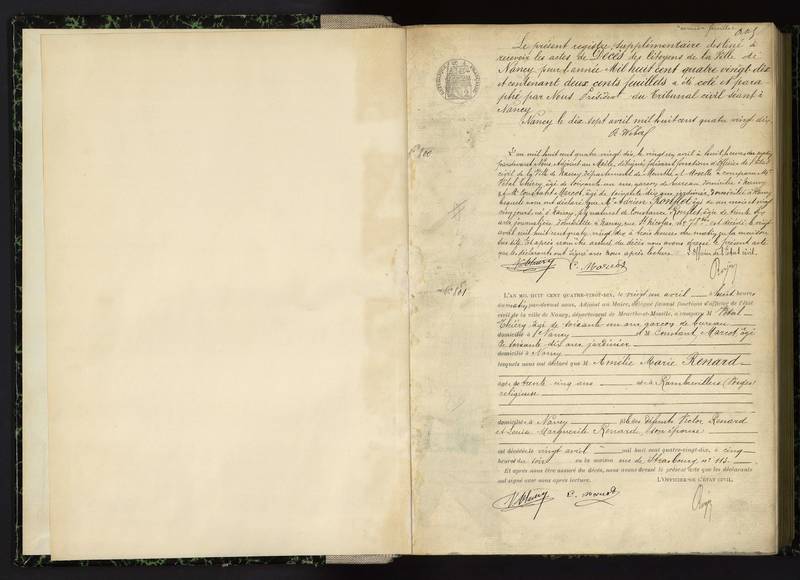 Le présent registre supplémentaire destiné à
recevoir les actes de Décès des Citoyens de la Ville de
Nancy pour l'année Mil huit cent quatre vingt dix
et contenant deux cents feuillets a été coté et para-
phé par Nous Président du Tribunal civil séant à
Nancy
Nancy le dix sept avril mil huit cent quatre vingt dix
N° 800
L'an mil huit cent quatre vingt dix, le vingt un avril à huit heures du matin
pardevant Nous, Adjoint au Maire, délégué faisant fonctions d'Officier de l'État
civil de la Ville de Nancy, Département de Meurthe et Moselle, a comparu M.
Vital Thiéry, âgé de soixante un ans, garçon de bureau domicilié à Nancy
et M. Constant Marcot, âgé de soixante dix ans jardinier, domicilié à Nancy
lesquels nous ont déclaré que M. Adrien
cinq jours, né à Nancy, fils naturel de
ans journalière domiciliée à Nancy, rue St Nicolas, est décédé le vingt
avril mil huit cent quatre vingt dix à trois heures du matin en la maison
Et après nous être assuré du décès nous avons dressé le présent acte
que les déclarants ont signé avec nous après lecture. L'Officier de l'État civil.
V. Thiéry C. Marcot
N° 801
L'AN MIL HUIT CENT QUATRE-VINGT-DIX, le vingt un avril à huit heures
du matin par-devant nous, Adjoint au Maire, délégué faisant fonctions d'officier de l'état
civil de la ville de Nancy, département de Meurthe-et-Moselle, a comparu M Vital
Thiéry âgé de soixante un ans garçon de bureau
domicilié à Nancy et M Constant Marcot âgé
de soixante dix ans jardinier
domicilié à Nancy
lesquels nous ont déclaré que M Amélie Marie Renard
âgée de trente cinq ans née à Rambervillers (Vosges)
religieuse
domiciliée à Nancy fille des défunts Victor Renard
et Louise Marguerite Renard, son épouse
est décédée le vingt avril mil huit cent quatre-vingt-dix, à cinq
heures du soir en la maison rue de Strasbourg n° 115
Et après nous être assuré du décès, nous avons dressé le présent acte que les déclarants
ont signé avec nous après lecture. L'OFFICIER DE L'ÉTAT CIVIL,
V. Thiéry C. Marcot